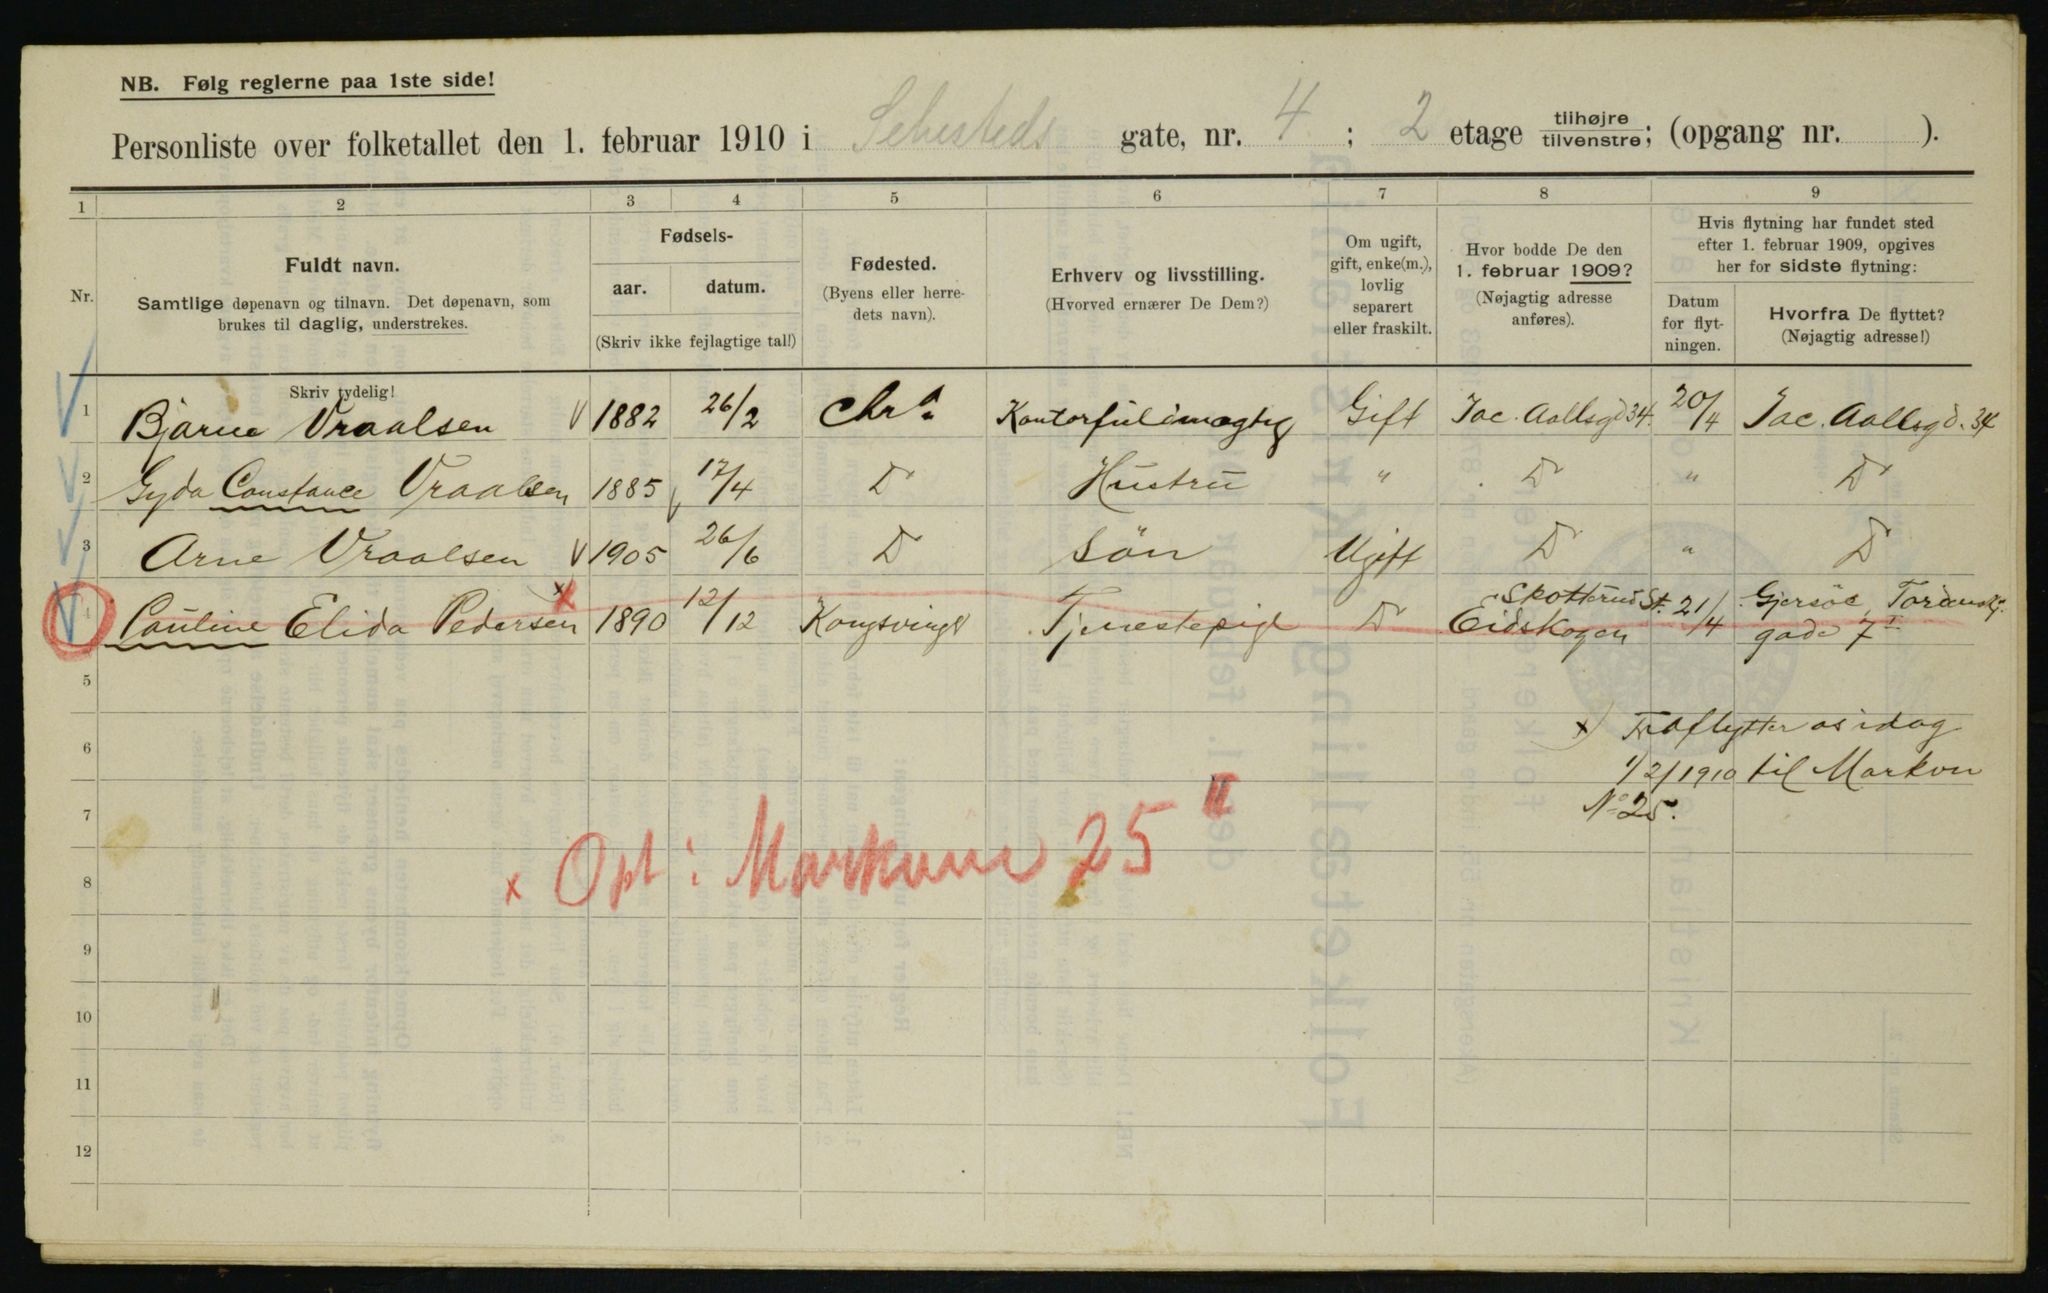 NB. Følg reglerne paa 1ste side!
Personliste over folketallet den 1. februar 1910 i Sehesteds gate, nr. 4; 2 etage tilhøjre/tilvenstre; (opgang nr. ).
1 2 3 4 5 6 7 8 9
Nr.
Fuldt navn.
Samtlige døpenavn og tilnavn. Det døpenavn, som
brukes til daglig, understrekes.
Skriv tydelig!
Fødsels-
aar. datum.
(Skriv ikke fejlagtige tal!)
Fødested.
(Byens eller herre-
dets navn).
Erhverv og livsstilling.
(Hvorved ernærer De Dem?)
Om ugift,
gift, enke(m.),
lovlig
separert
eller fraskilt.
Hvor bodde De den
1. februar 1909?
(Nøjagtig adresse
anføres).
Hvis flytning har fundet sted
efter 1. februar 1909, opgives
her for sidste flytning:
Datum
for flyt-
ningen.
Hvorfra De flyttet?
(Nøjagtig adresse!)
1 Bjarne Vraalsen 1882 26/2 Chr.a Kontorfuldmægtig Gift Jac. Aallsgd 34. 20/4 Jac. Aallsgd. 34
2 Gyda Constance Vraalsen 1885 17/4 D Hustru " D " D
3 Arne Vraalsen 1905 26/6 D Søn Ugift D " D
4 Pauline Elida Pedersen x 1890 12/12 Kongsvinger Tjenestepige D Skotterud St. Eidskogen 21/4 Gjersöe, Tordenskj.
gade 7 I
5
6 x) Fraflytter os idag
1/2/1910 til Markvn
7 No 25.
x Opt i Markvnn 25 II
8
9
10
11
12